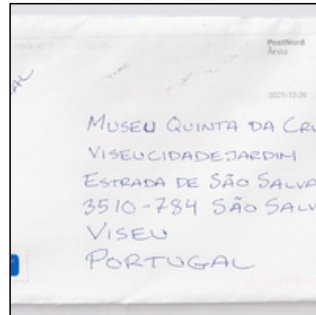 PostNord
Årsta
2021-12-20
MUSEU QUINTA DA CRU
VISEUCIDADEJARDIM
ESTRADA DE SÃO SALVA
3510-784 SÃO SALV
VISEU
PORTUGAL